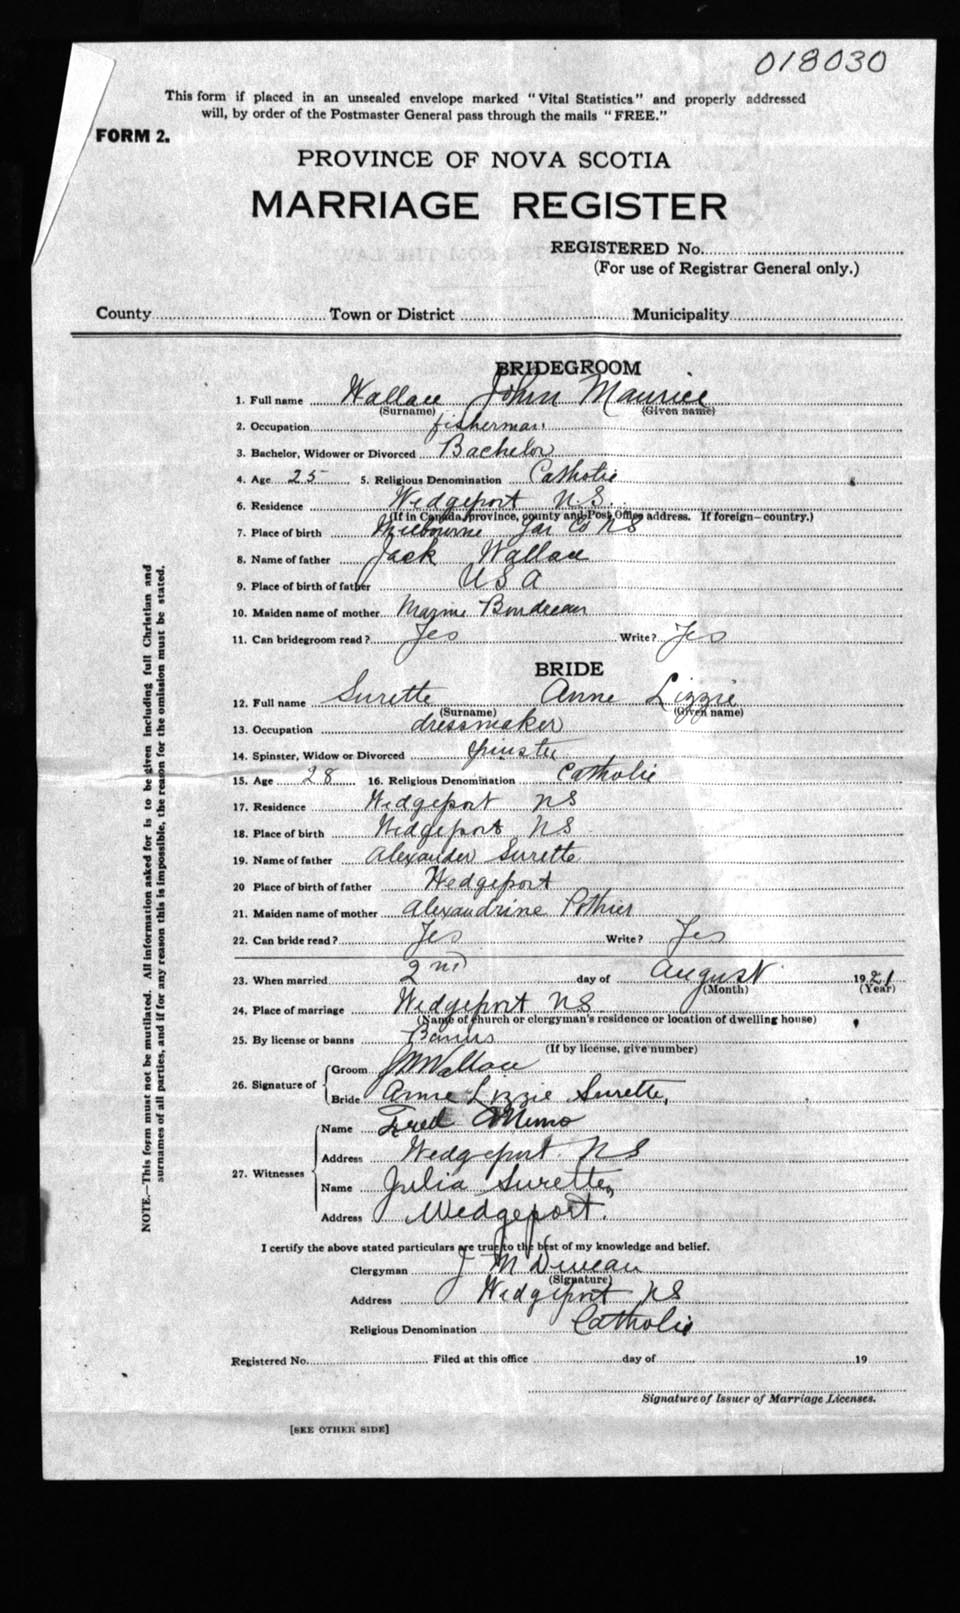 018030
This form if placed in an unsealed envelope marked "Vital Statistics" and properly addressed
will, by order of the Postmaster General pass through the mails "FREE."
FORM 2.
PROVINCE OF NOVA SCOTIA
MARRIAGE REGISTER
REGISTERED No.
(For use of Registrar General only.)
County Town or District Municipality
BRIDEGROOM
1. Full name Wallace John Maurice
(Surname) (Given name)
2. Occupation fisherman
3. Bachelor, Widower or Divorced Bachelor
4. Age 25 5. Religious Denomination Catholic
6. Residence Wedgeport N.S.
(If in Canada, province, county and Post Office address. If foreign—country.)
7. Place of birth Melbourne Yar Co NS
8. Name of father Jack Wallace
9. Place of birth of father U S A
10. Maiden name of mother Boudreau
11. Can bridegroom read? Yes Write? Yes
BRIDE
12. Full name Surette Anne Lizzie
(Surname) (Given name)
13. Occupation dressmaker
14. Spinster, Widow or Divorced Spinster
15. Age 28 16. Religious Denomination Catholic
17. Residence Wedgeport NS
18. Place of birth Wedgeport NS
19. Name of father Alexander Surette
20 Place of birth of father Wedgeport
21. Maiden name of mother Alexandrine Pothier
22. Can bride read? Yes Write? Yes
23. When married 2nd day of August 1921
(Month) (Year)
24. Place of marriage Wedgeport NS
(Name of church or clergyman's residence or location of dwelling house)
25. By license or banns Banns
(If by license, give number)
26. Signature of Groom J M Wallace
Bride Anne Lizzie Surette,
27. Witnesses Name Fred
Address Wedgeport NS
Name Julia Surette,
Address Wedgeport.
I certify the above stated particulars are true to the best of my knowledge and belief.
Clergyman J M Duncan
(Signature)
Address Wedgeport NS
Religious Denomination Catholic
Registered No. Filed at this office day of 19
Signature of Issuer of Marriage Licenses.
[SEE OTHER SIDE]
NOTE.—This form must not be mutilated. All information asked for is to be given including full Christian and
surnames of all parties, and if for any reason this is impossible, the reason for the omission must be stated.